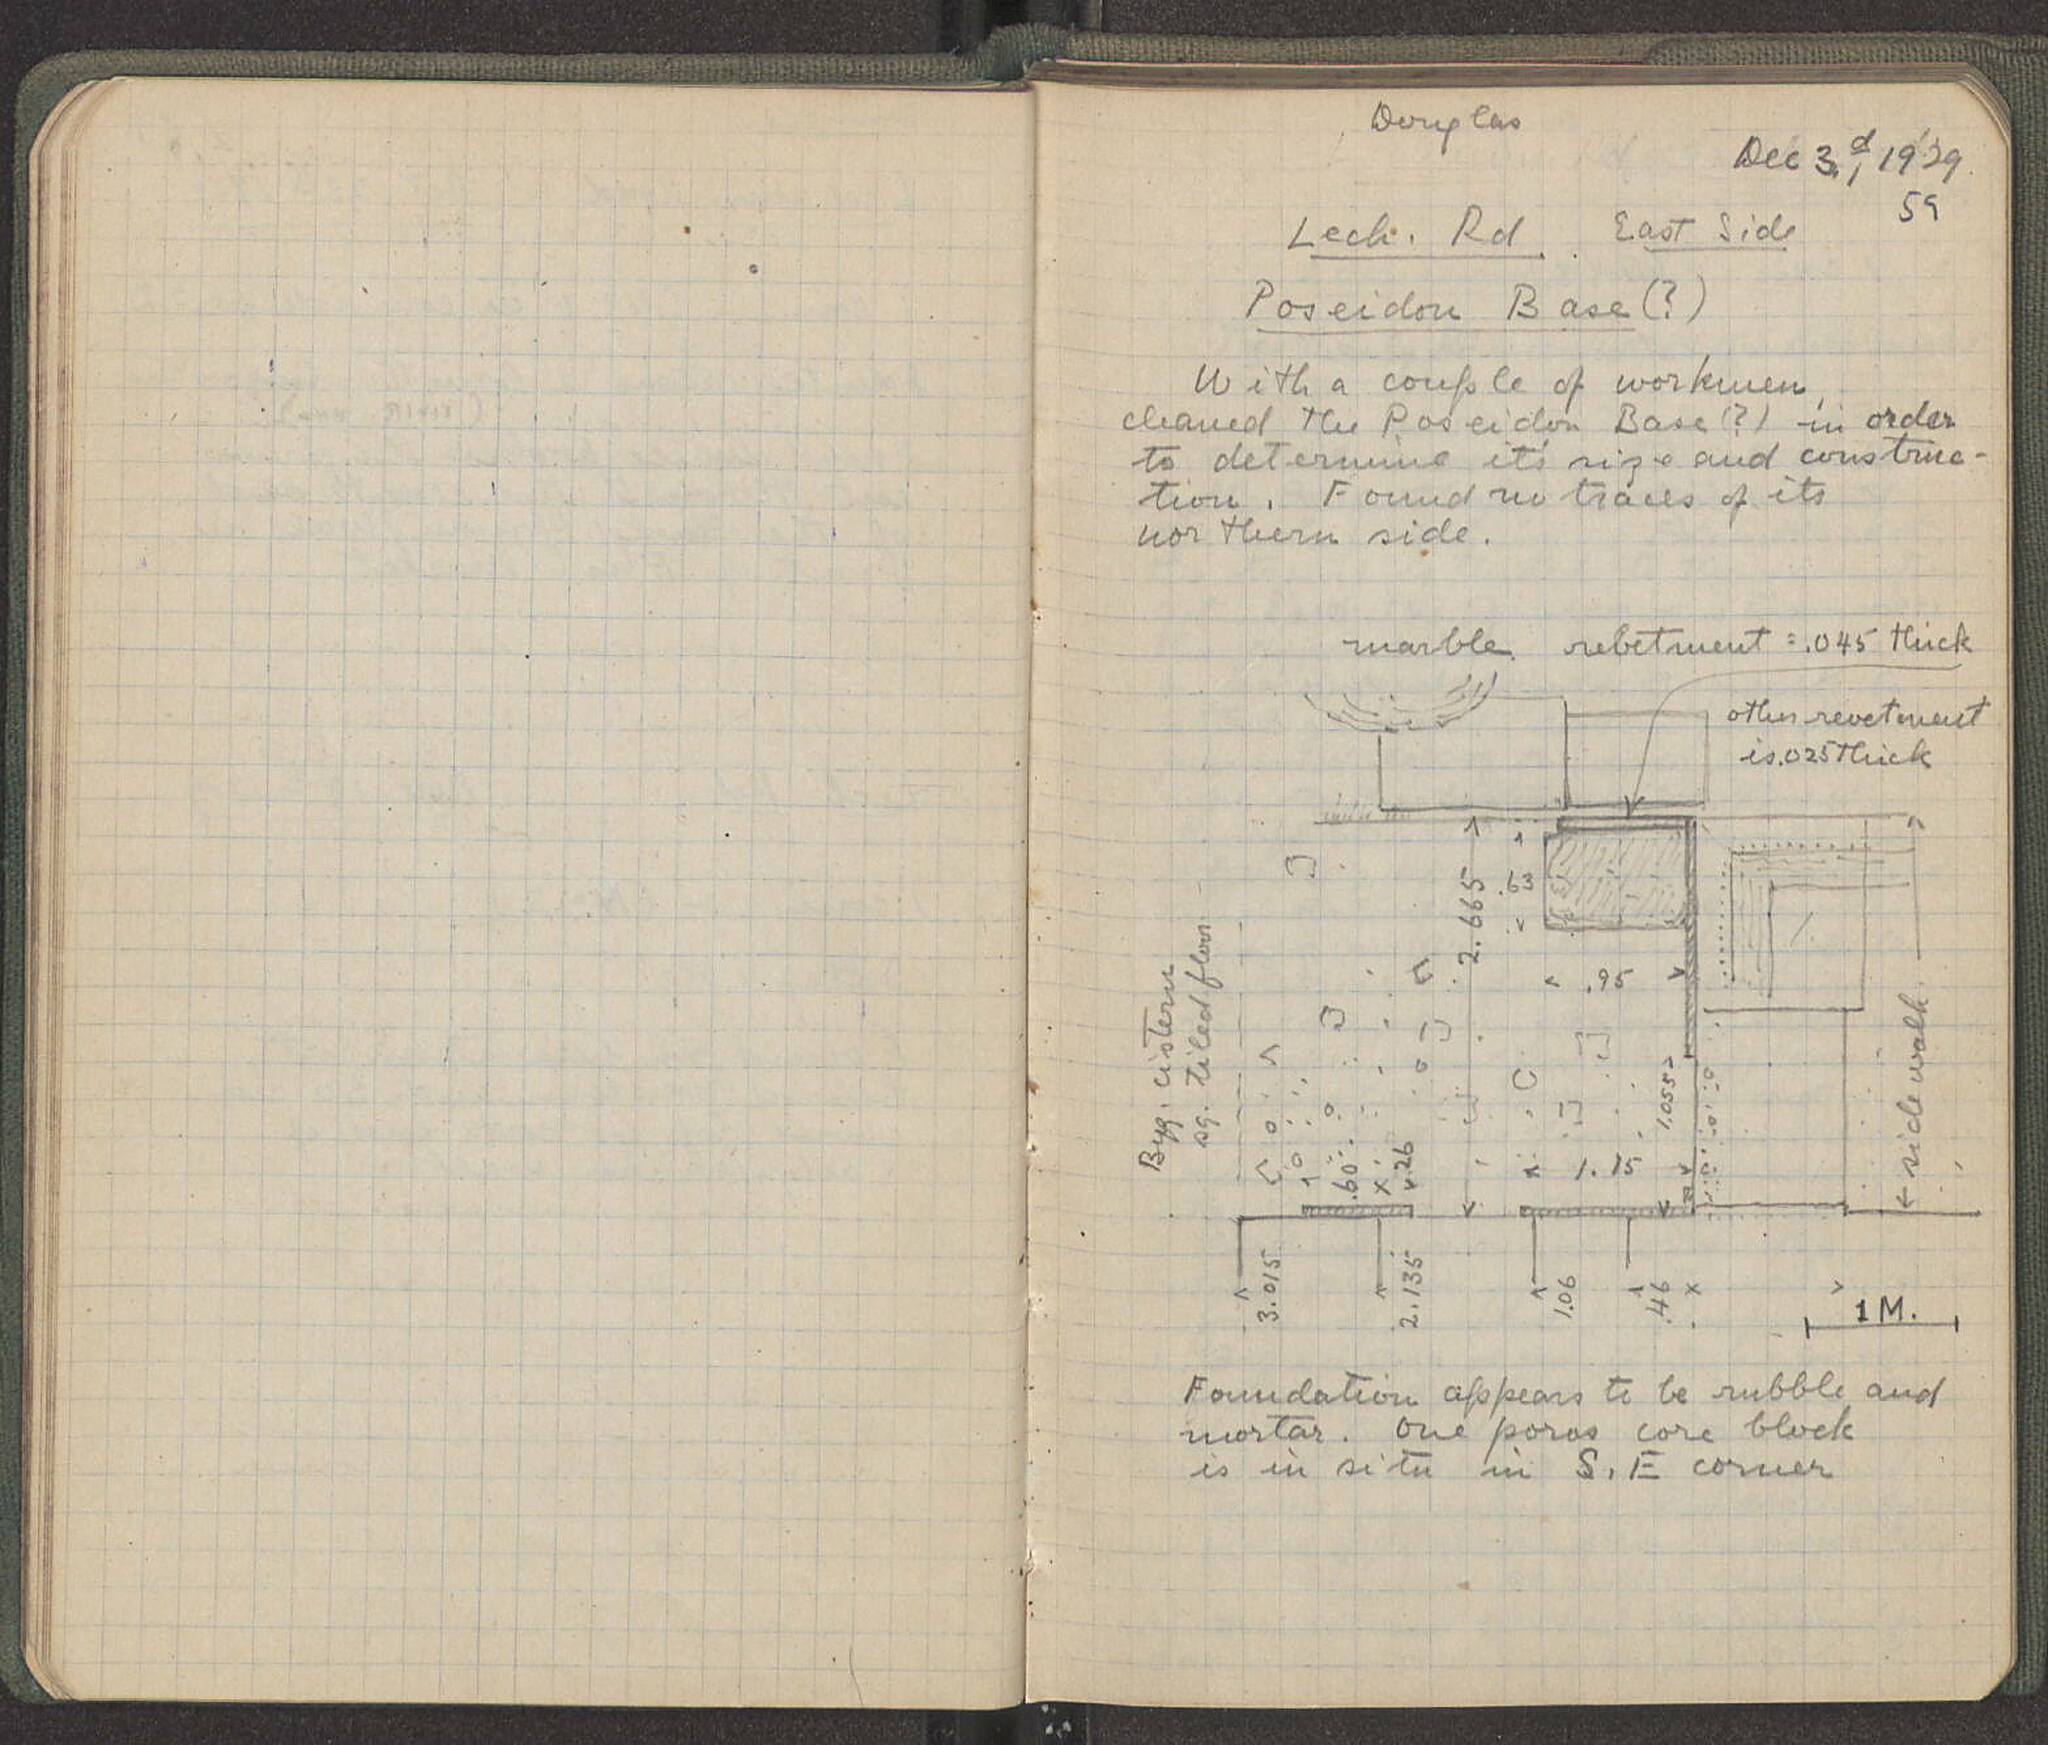 Douglas
Dec 3,d 1929
59
Lech. Rd. East Side
Poseidon Base (?)
With a couple of workmen,
cleaned the Poseidon Base (?) in order
to determine it's size and construc-
tion. Found no traces of its
northern side.
marble rebetment = .045 thick
other revetment
is .025 thick
2.665
.63
.95
Byz. cistern
sq. tiled floor
1.055
← sidewalk
.60
.26
1.15
3.015
2.135
1.06
.46
1 M.
Foundation appears to be rubble and
mortar. One poros core block
is in situ in S.E corner